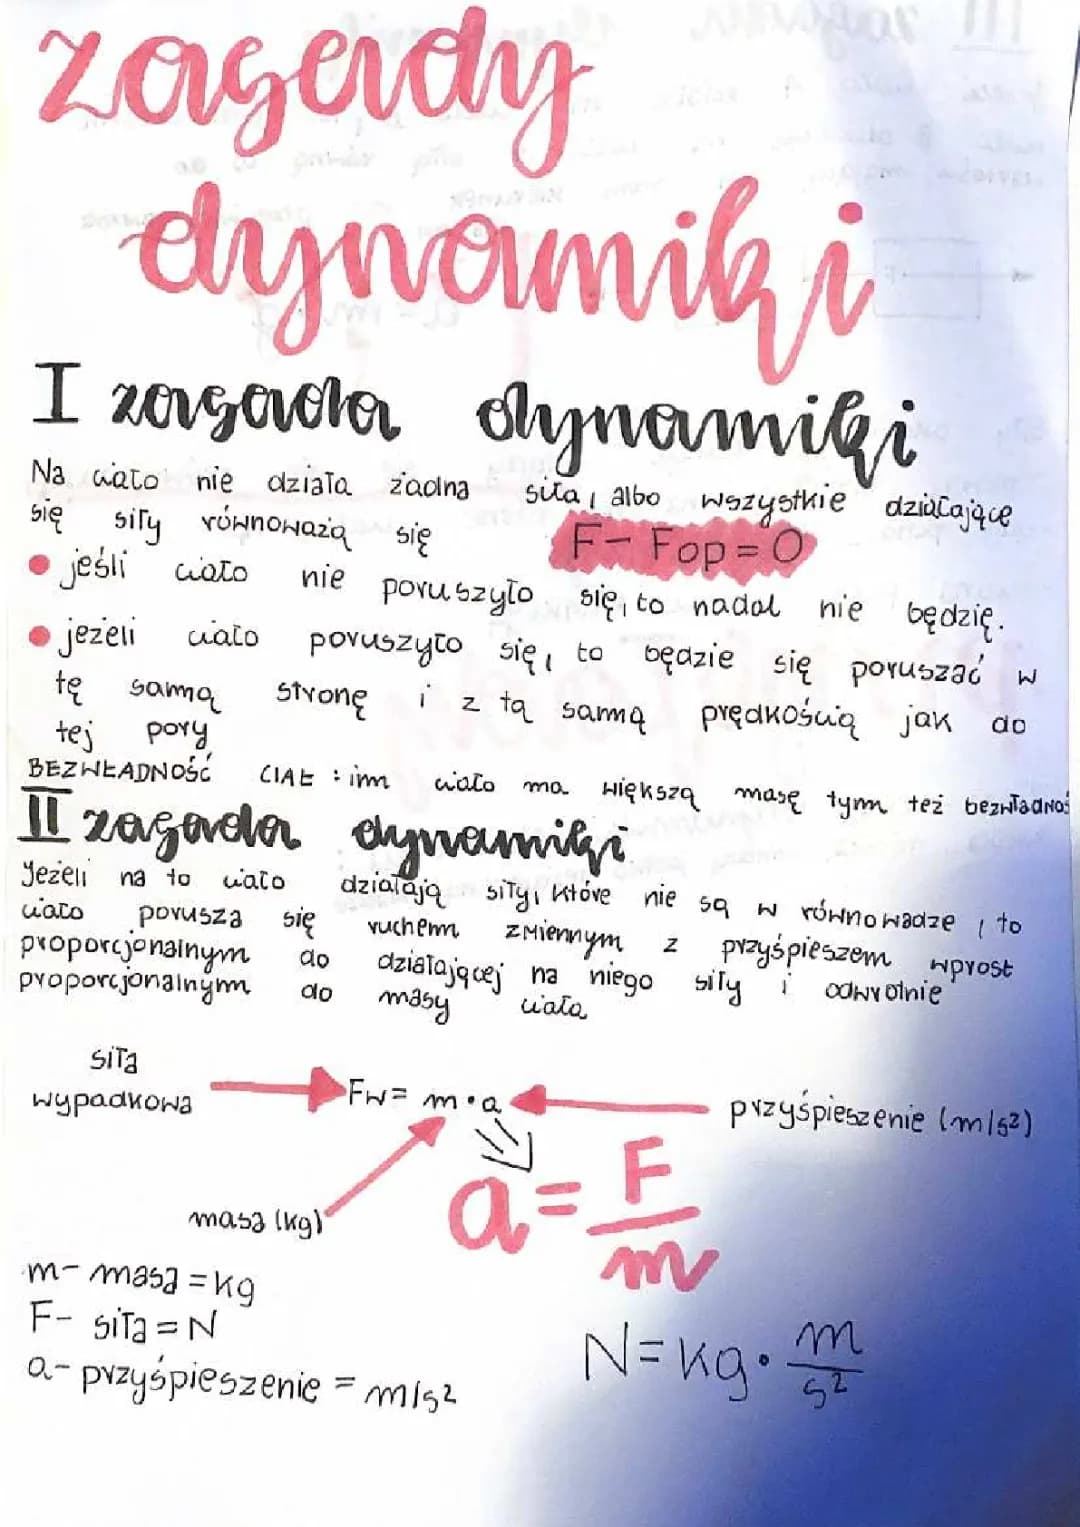 zasady
dynamiki
I zasada dynamiki
Na ciało nie działa żadna siła, albo wszystkie działające
się siły równoważą się F - Fop = 0
• jeśli ciało nie poruszyło się, to nadal nie będzię.
• jeżeli ciało poruszyło się, to będzie się poruszać w
tę samą stronę i z tą samą prędkością jak do
tej pory
BEZWŁADNOŚĆ CIAŁ : im ciało ma większą masę tym też bezwładnoś
II zasada dynamiki
Jeżeli na to ciało działają siły, które nie są w równowadze, to
ciało porusza się ruchem zmiennym z przyśpieszem wprost
proporcjonalnym do działającej na niego siły i odwrotnie
proporcjonalnym do masy ciała
siła
wypadkowa
Fw = m • a
przyśpieszenie (m/s²)
masa (kg)
a = F/m
m - masa = kg
F - siła = N
a - przyśpieszenie = m/s²
N = kg • m/s²